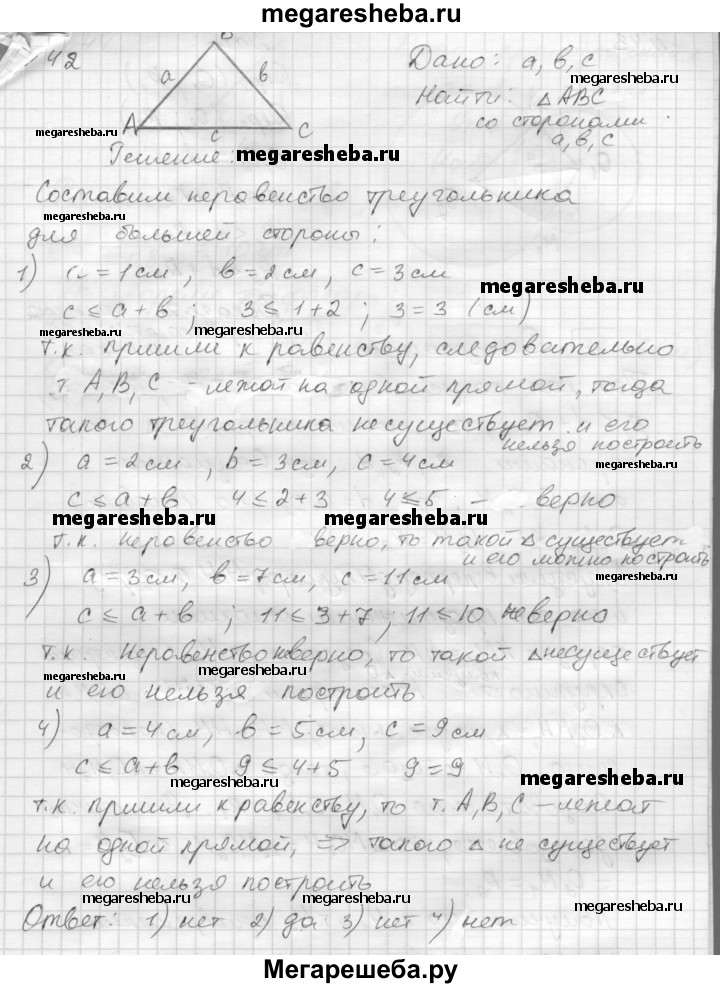 megaresheba.ru
42
B
a
в
A
с
C
Дано: a, в, с
megaresheba.ru
Найти: △ABC
со сторонами
a, в, с
megaresheba.ru
Решение:
megaresheba.ru
Составим неравенство треугольника
megaresheba.ru
для большей стороны:
1) a = 1 см, в = 2 см, с = 3 см
megaresheba.ru
с ≤ a + в ; 3 ≤ 1 + 2 ; 3 = 3 (см)
megaresheba.ru
megaresheba.ru
т.к. пришли к равенству, следовательно
т. A, B, C - лежат на одной прямой, тогда
megaresheba.ru
megaresheba.ru
такого треугольника не существует и его
нельзя построить
2) a = 2 см, b = 3 см, с = 4 см
megaresheba.ru
с ≤ a + в 4 ≤ 2 + 3 4 ≤ 5 - верно
megaresheba.ru
megaresheba.ru
т.к. неравенство верно, то такой △ существует
и его можно построить
3) a = 3 см, в = 7 см, с = 11 см
megaresheba.ru
с ≤ a + в ; 11 ≤ 3 + 7 ; 11 ≤ 10 неверно
т.к. неравенство неверно, то такой △ не существует
megaresheba.ru
megaresheba.ru
и его нельзя построить
4) a = 4 см, в = 5 см, с = 9 см
с ≤ a + в 9 ≤ 4 + 5 9 = 9
megaresheba.ru
megaresheba.ru
т.к. пришли к равенству, то т. A, B, C - лежат
на одной прямой, => такого △ не существует
и его нельзя построить
megaresheba.ru
megaresheba.ru
Ответ: 1) нет 2) да 3) нет 4) нет
megaresheba.ru
Мегарешеба.ру